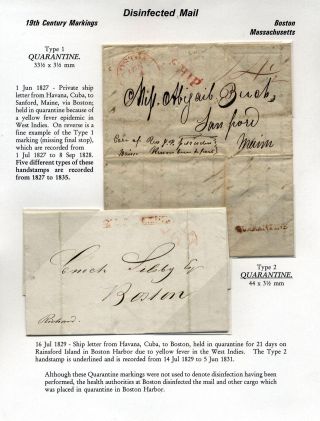 Disinfected Mail
19th Century Markings
Boston
Massachusetts
Type 1
QUARANTINE.
33½ x 3½ mm
1 Jun 1827 - Private ship
letter from Havana, Cuba, to
Sanford, Maine, via Boston;
held in quarantine because of
a yellow fever epidemic in
West Indies. On reverse is a
fine example of the Type 1
marking (missing final stop),
which are recorded from
1 Jul 1827 to 8 Sep 1828.
Five different types of these
handstamps are recorded
from 1827 to 1835.
SHIP
Miss Abigail Buck
Maine
QUARANTINE
Enoch Silsby Esq
Boston
Richard
Type 2
QUARANTINE.
44 x 3½ mm
16 Jul 1829 - Ship letter from Havana, Cuba, to Boston, held in quarantine for 21 days on
Rainsford Island in Boston Harbor due to yellow fever in the West Indies. The Type 2
handstamp is underlined and is recorded from 14 Jul 1829 to 5 Jun 1831.
Although these Quarantine markings were not used to denote disinfection having been
performed, the health authorities at Boston disinfected the mail and other cargo which
was placed in quarantine in Boston Harbor.